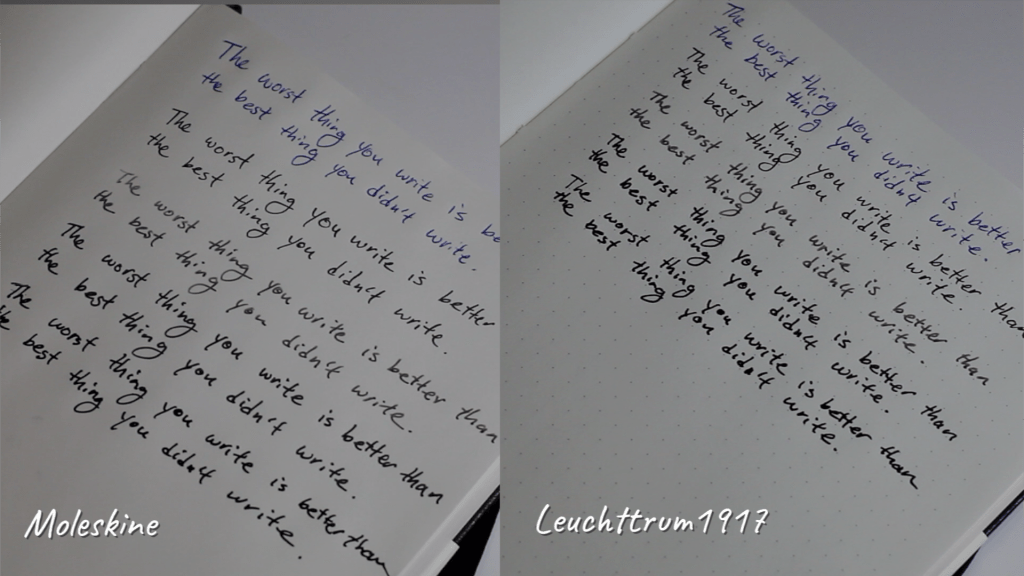 The worst thing you write is be
the best thing you didn't write.
The worst thing you write is better
the best thing you didn't write.
The worst thing you write is better than
the best thing you didn't write.
The worst thing you write is better than
the best thing you didn't write.
The worst thing you write is better than
the best thing you didn't write.
Moleskine
The worst thing you write is better
the best thing you didn't write.
The worst thing you write is better than
the best thing you didn't write.
The worst thing you write is better than
the best thing you didn't write.
The worst thing you write is better than
the best thing you didn't write.
The worst thing you write is better than
the best thing you didn't write.
Leuchttrum1917